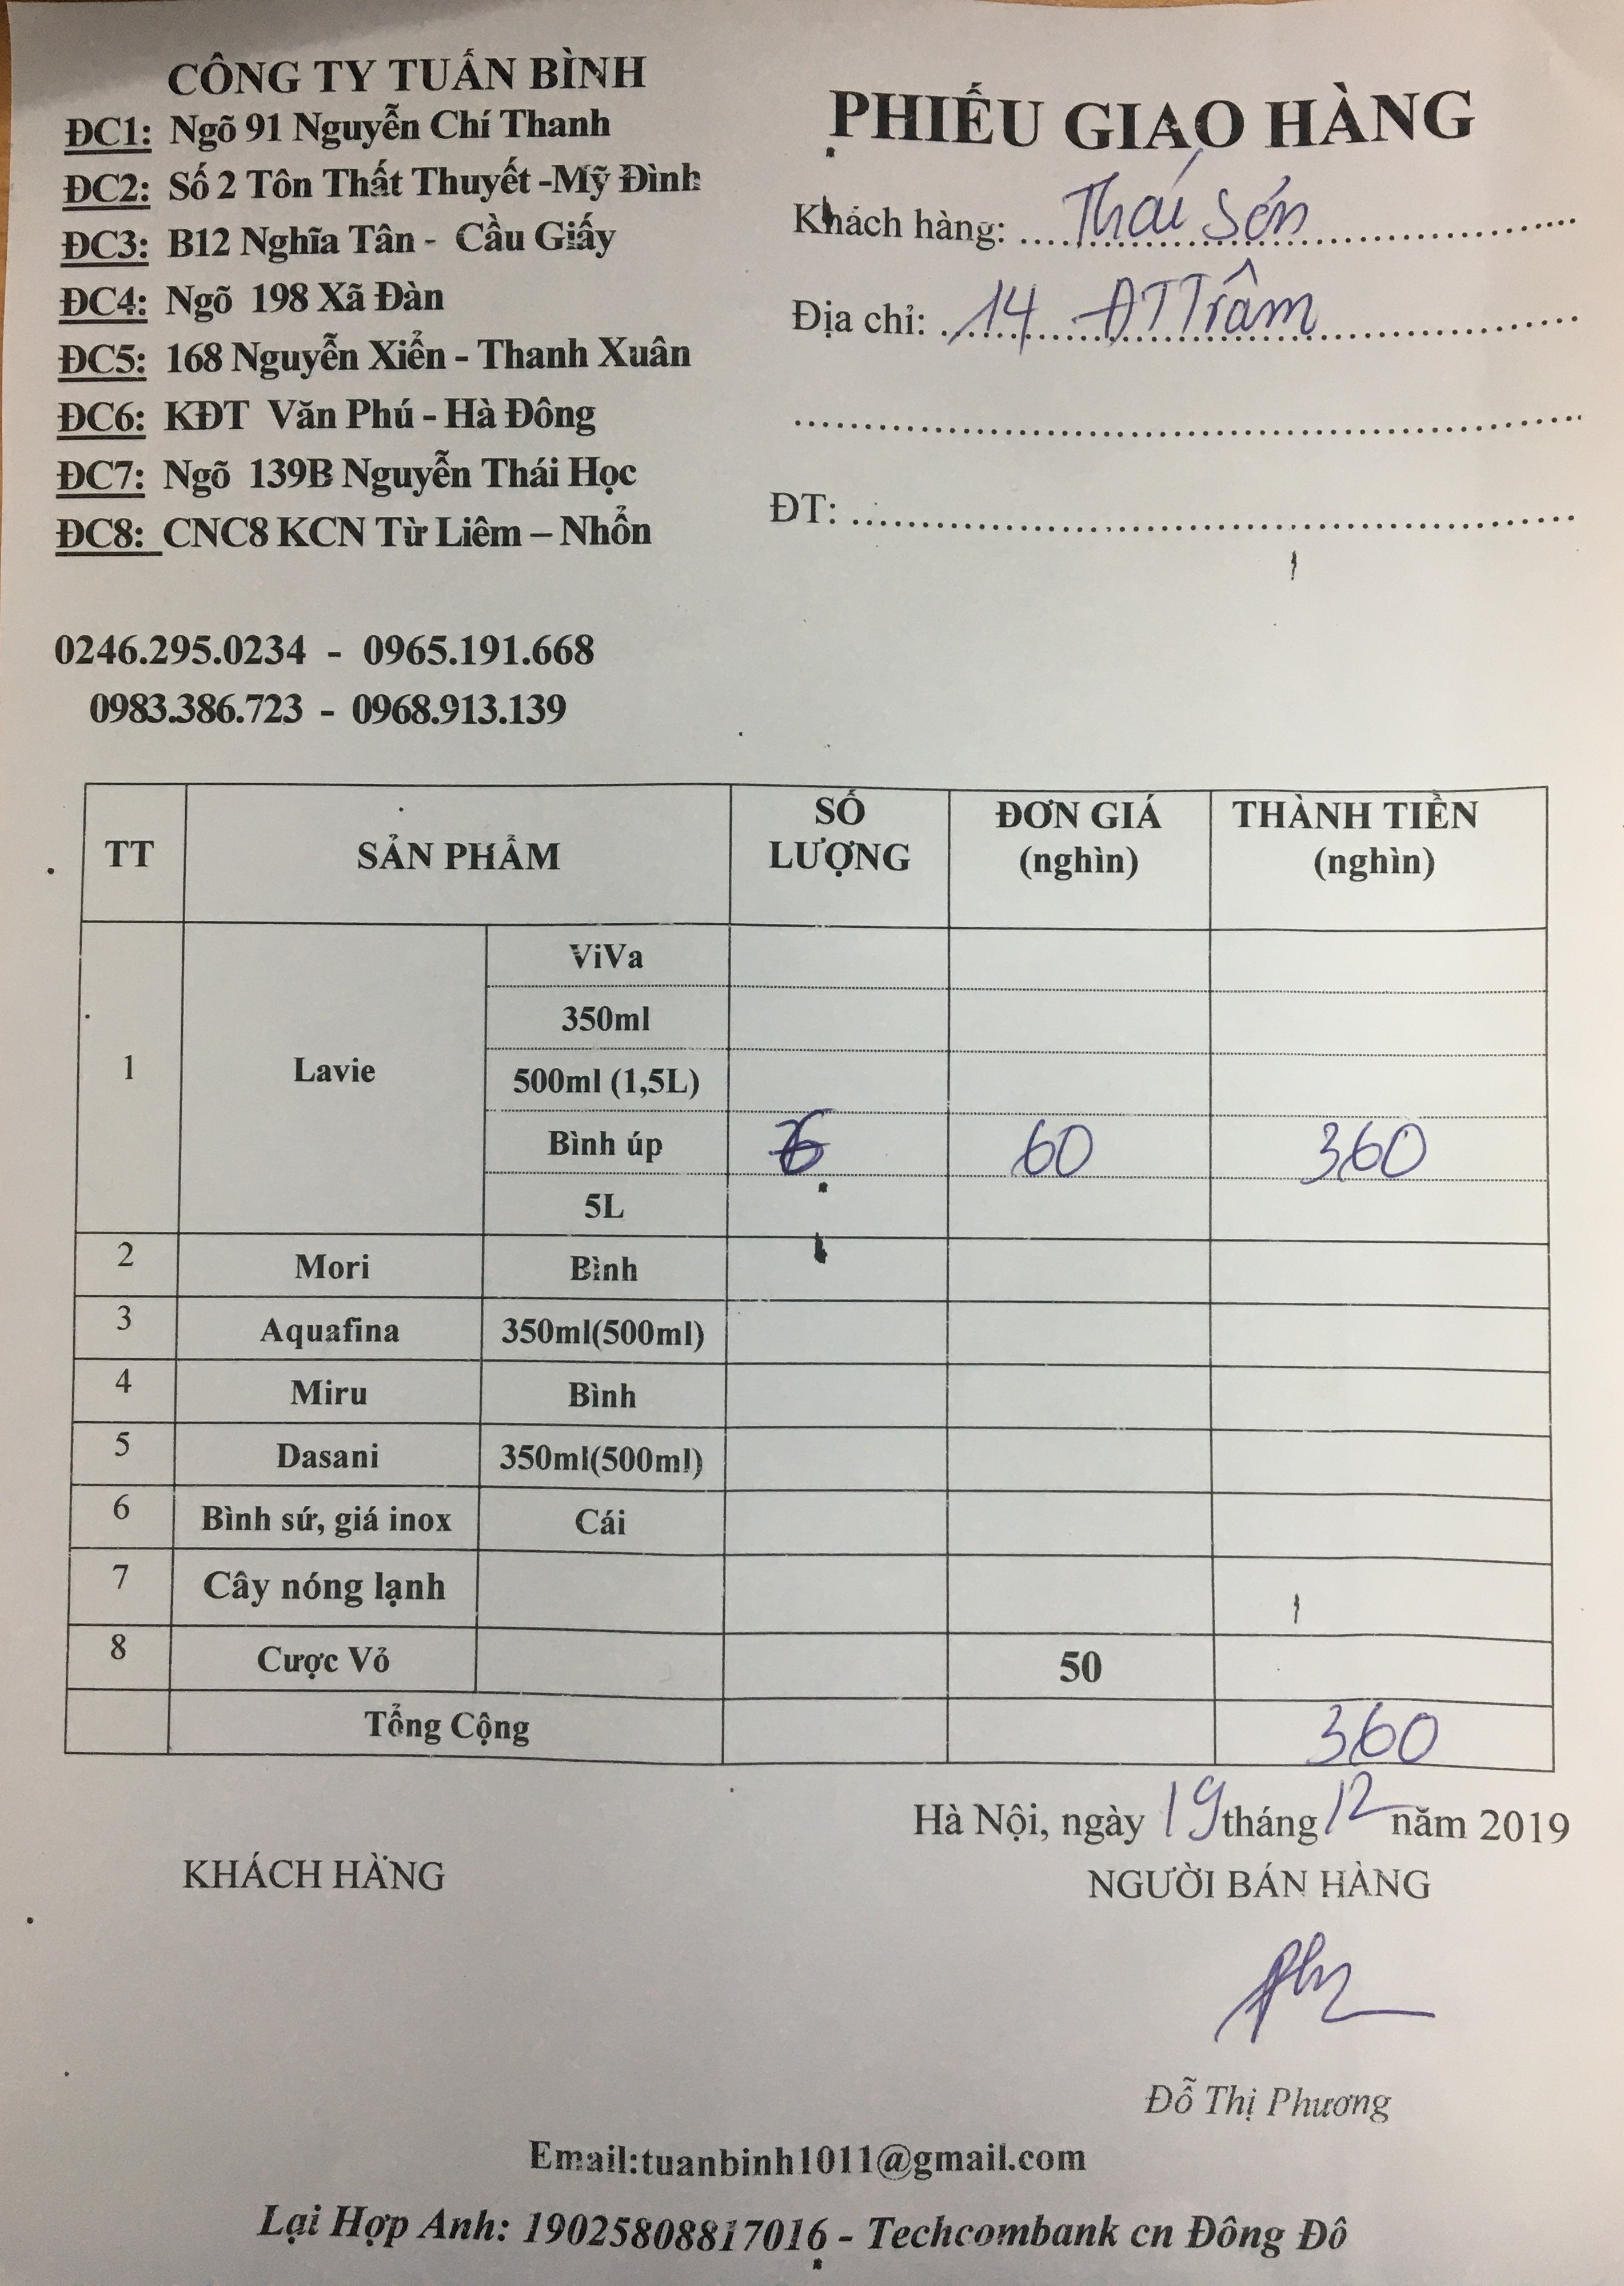 CÔNG TY TUẤN BÌNH
ĐC1: Ngõ 91 Nguyễn Chí Thanh
ĐC2: Số 2 Tôn Thất Thuyết -Mỹ Đình
ĐC3: B12 Nghĩa Tân - Cầu Giấy
ĐC4: Ngõ 198 Xã Đàn
ĐC5: 168 Nguyễn Xiển - Thanh Xuân
ĐC6: KĐT Văn Phú - Hà Đông
ĐC7: Ngõ 139B Nguyễn Thái Học
ĐC8: CNC8 KCN Từ Liêm – Nhổn
0246.295.0234 - 0965.191.668
0983.386.723 - 0968.913.139
PHIẾU GIAO HÀNG
Khách hàng: Thái Sơn
Địa chỉ: 14 ĐTTrâm
ĐT:
TT SẢN PHẨM SỐ LƯỢNG ĐƠN GIÁ (nghìn) THÀNH TIỀN (nghìn)
1 Lavie ViVa
350ml
500ml (1,5L)
Bình úp 6 60 360
5L
2 Mori Bình
3 Aquafina 350ml(500ml)
4 Miru Bình
5 Dasani 350ml(500ml)
6 Bình sứ, giá inox Cái
7 Cây nóng lạnh
8 Cược Vỏ 50
Tổng Cộng 360
Hà Nội, ngày 19 tháng 12 năm 2019
KHÁCH HÀNG NGƯỜI BÁN HÀNG
Đỗ Thị Phương
Email:tuanbinh1011@gmail.com
Lại Hợp Anh: 19025808817016 - Techcombank cn Đông Đô